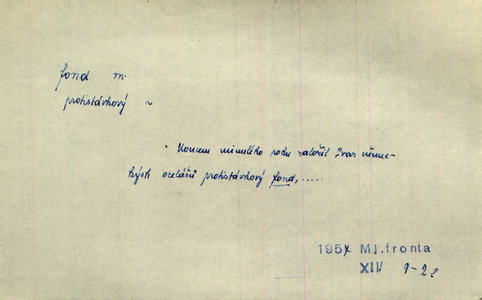 fond m.
protistávkový ~
Koncem minulého roku založil Svaz němec-
kých ocelářů protistávkový fond, .....
1957 Ml.fronta
XIV 9-2